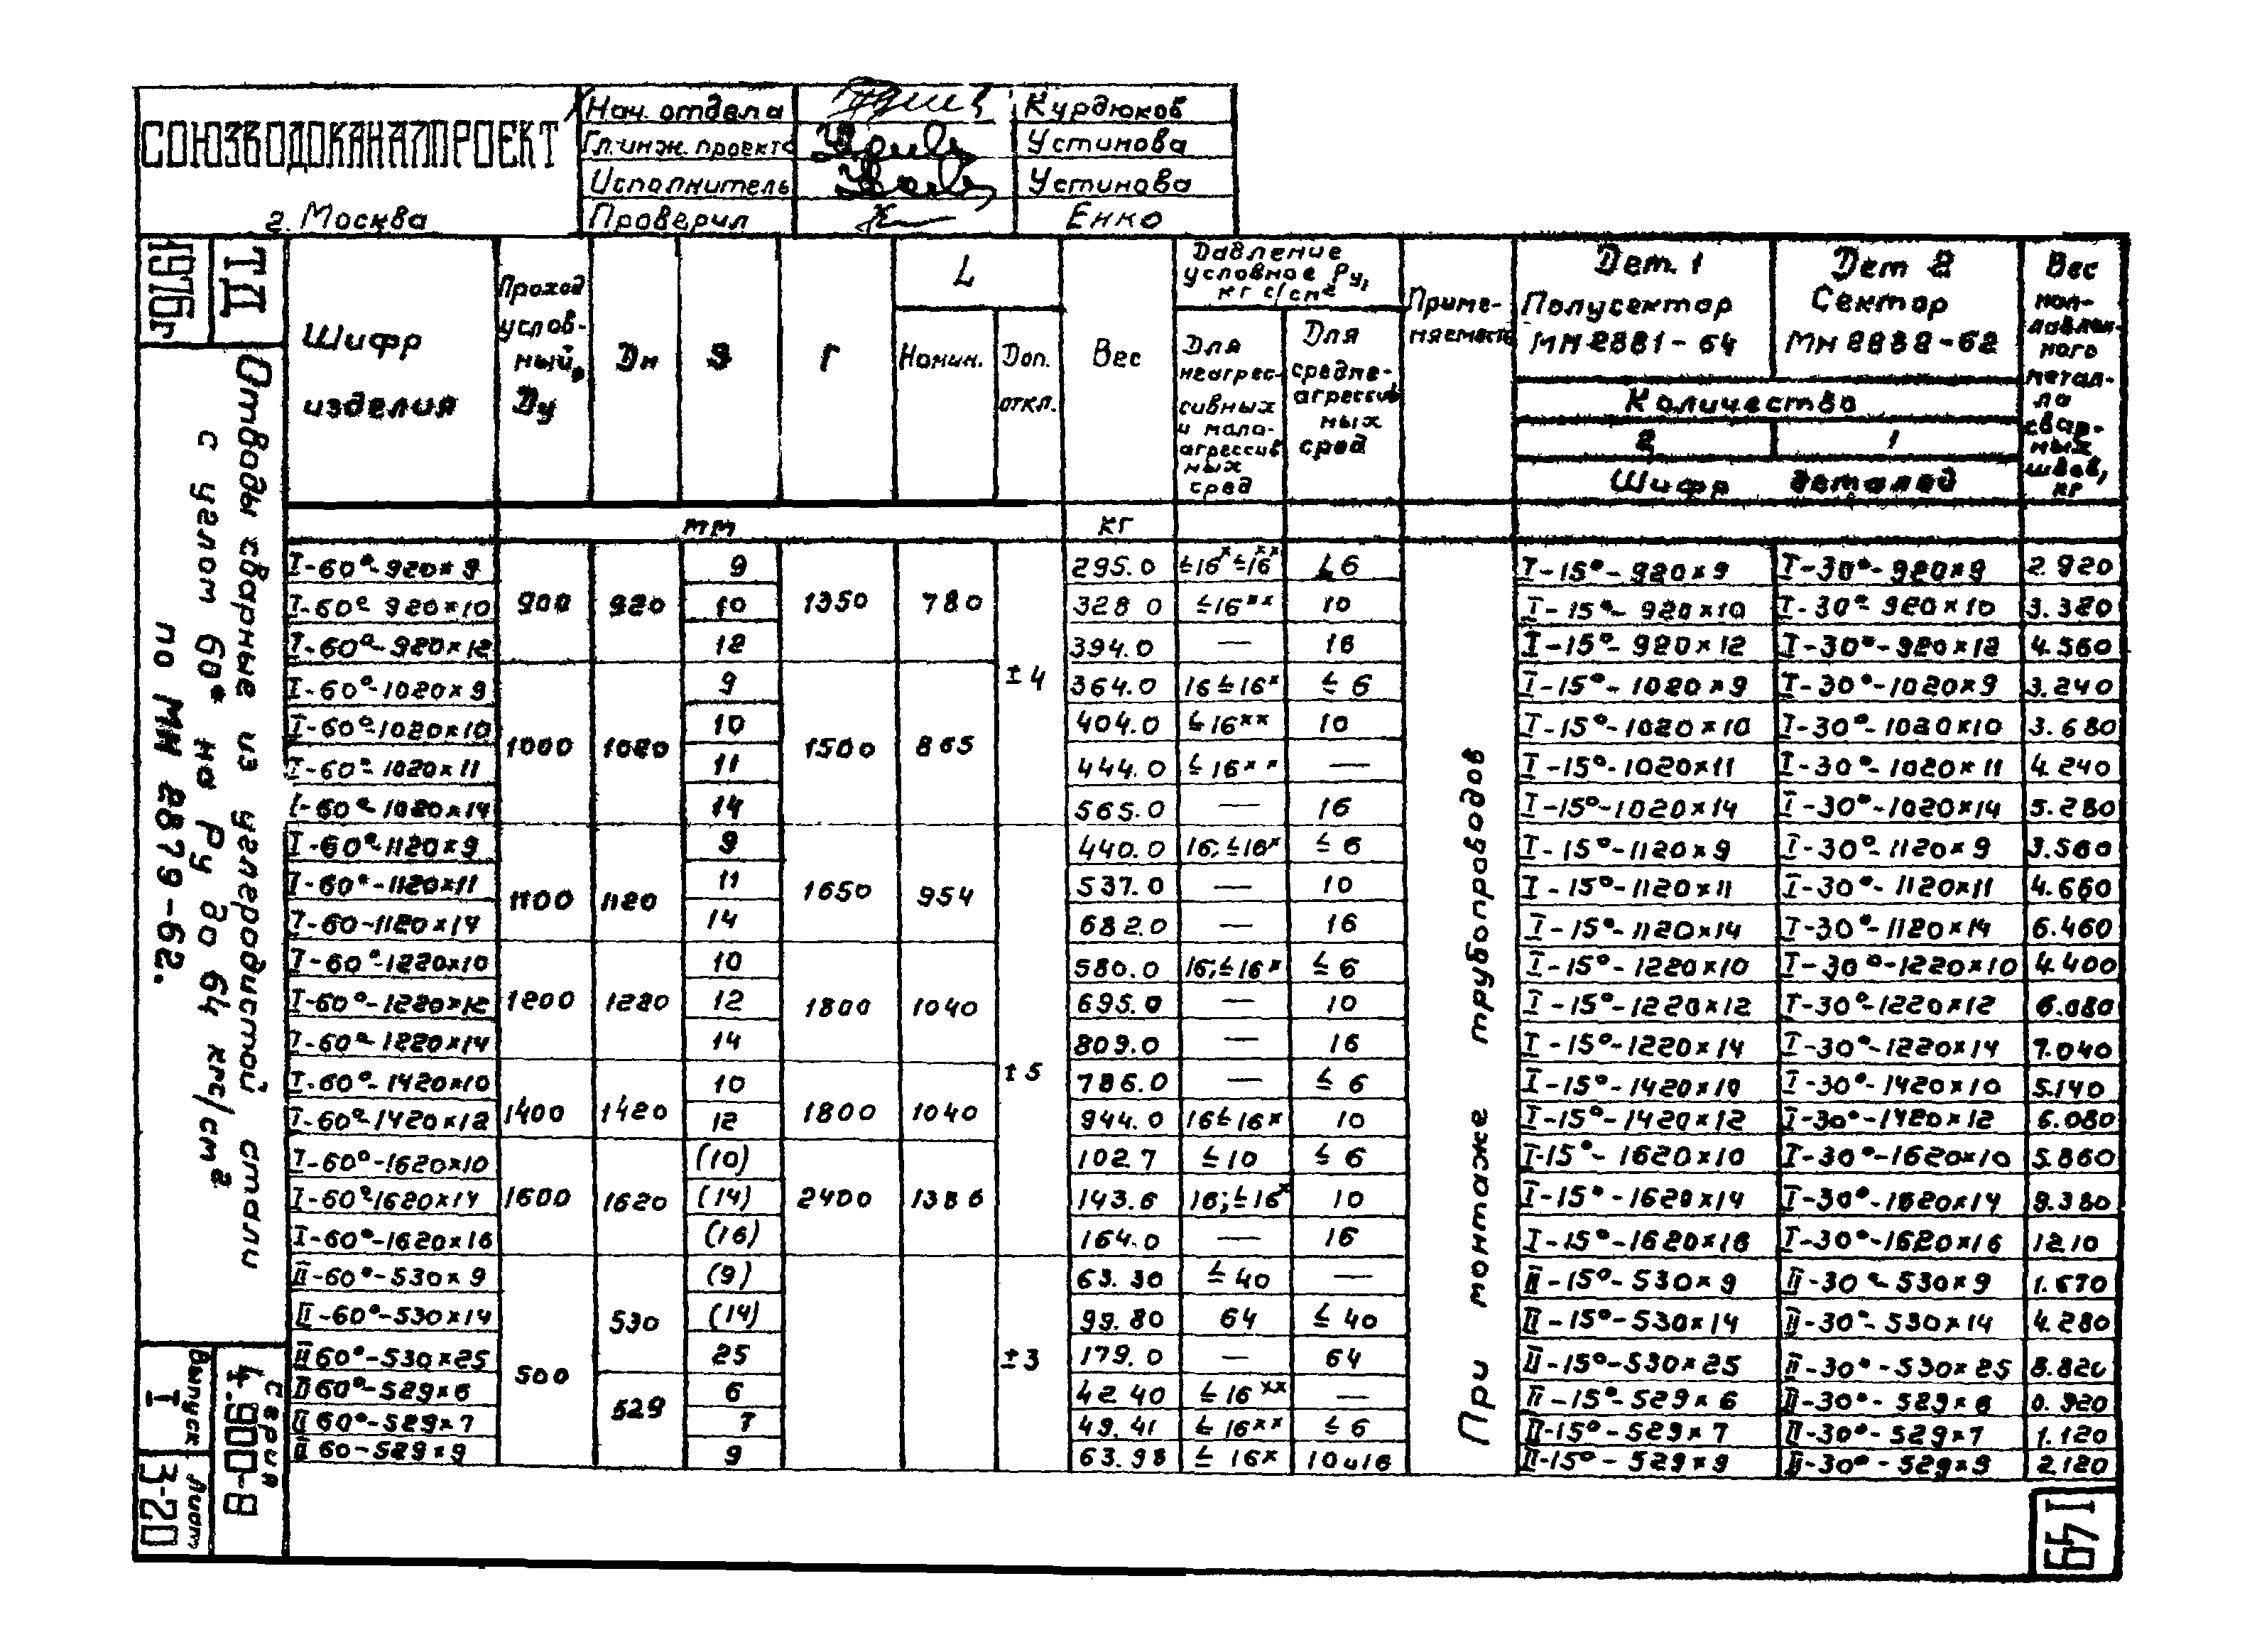 СОЮЗВОДОКАНАЛПРОЕКТ
г. Москва
Нач. отдела Курдюков
Гл. инж. проекта Устинова
Исполнитель Устинова
Проверил Енко
1976г
ТД
Отводы сварные из углеродистой стали
с углом 60° на Ру до 64 кгс/см2
по МН 2879-62.
Серия
4.900-8
Выпуск
I
Лист
3-20
Шифр
изделия
Проход
услов-
ный,
Ду
Дн
S
r
L
Номин.
Доп.
откл.
Вес
Давление
условное Ру,
кгс/см2
Для
неагрес-
сивных
и мало-
агрессив
ных
сред
Для
средне-
агрессив
ных
сред
Приме-
няемость
Дет. 1
Полусектор
МН 2881-64
Дет 2
Сектор
МН 2882-62
Количество
2 1
Шифр деталей
Вес
нап-
лавлен-
ного
метал-
ла
свар-
ных
швов,
кг
мм кг
I-60°-920×9 9 295.0 ≤16× ≤16×× ≤6 I-15°-920×9 I-30°-920×9 2.920
I-60° 920×10 900 920 10 1350 780 328 0 ≤16×× 10 I-15°-920×10 I-30°-920×10 3.320
I-60°-920×12 12 394.0 — 16 I-15°-920×12 I-30°-920×12 4.560
I-60°-1020×9 9 ±4 364.0 16≤16× ≤6 I-15°-1020×9 I-30°-1020×9 3.240
I-60°-1020×10 10 404.0 ≤16×× 10 I-15°-1020×10 I-30°-1020×10 3.680
1000 1020 1500 865
I-60°-1020×11 11 444.0 ≤16×× — I-15°-1020×11 I-30°-1020×11 4.240
I-60°-1020×14 14 565.0 — 16 I-15°-1020×14 I-30°-1020×14 5.280
I-60°-1120×9 9 440.0 16;≤16× ≤6 I-15°-1120×9 I-30°-1120×9 3.560
I-60°-1120×11 1100 1120 11 1650 954 537.0 — 10 I-15°-1120×11 I-30°-1120×11 4.660
I-60-1120×14 14 682.0 — 16 I-15°-1120×14 I-30°-1120×14 6.460
I-60°-1220×10 10 580.0 16;≤16× ≤6 I-15°-1220×10 I-30°-1220×10 4.400
I-60°-1220×12 1200 1220 12 1800 1040 695.0 — 10 I-15°-1220×12 I-30°-1220×12 6.080
I-60°-1220×14 14 809.0 — 16 I-15°-1220×14 I-30°-1220×14 7.040
I-60°-1420×10 10 ±5 786.0 — ≤6 I-15°-1420×10 I-30°-1420×10 5.140
I-60°-1420×12 1400 1420 12 1800 1040 944.0 16≤16× 10 I-15°-1420×12 I-30°-1420×12 6.080
I-60°-1620×10 (10) 102 7 ≤10 ≤6 I-15°-1620×10 I-30°-1620×10 5.860
I-60°-1620×14 1600 1620 (14) 2400 1386 143.6 16;≤16× 10 I-15°-1620×14 I-30°-1620×14 9.380
I-60°-1620×16 (16) 164.0 — 16 I-15°-1620×16 I-30°-1620×16 12.10
II-60°-530×9 (9) 63.30 ≤40 — II-15°-530×9 II-30°-530×9 1.670
II-60°-530×14 530 (14) 99.80 64 ≤40 II-15°-530×14 II-30°-530×14 4.280
II 60°-530×25 500 25 ±3 179.0 — 64 II-15°-530×25 II-30°-530×25 8.820
II 60°-529×6 6 42 40 ≤16×× — II-15°-529×6 II-30°-529×6 0.920
II 60°-529×7 529 7 49.41 ≤16×× ≤6 II-15°-529×7 II-30°-529×7 1.120
II 60-529×9 9 63.98 ≤16× 10и16 II-15°-529×9 II-30°-529×9 2.120
При монтаже трубопроводов
149